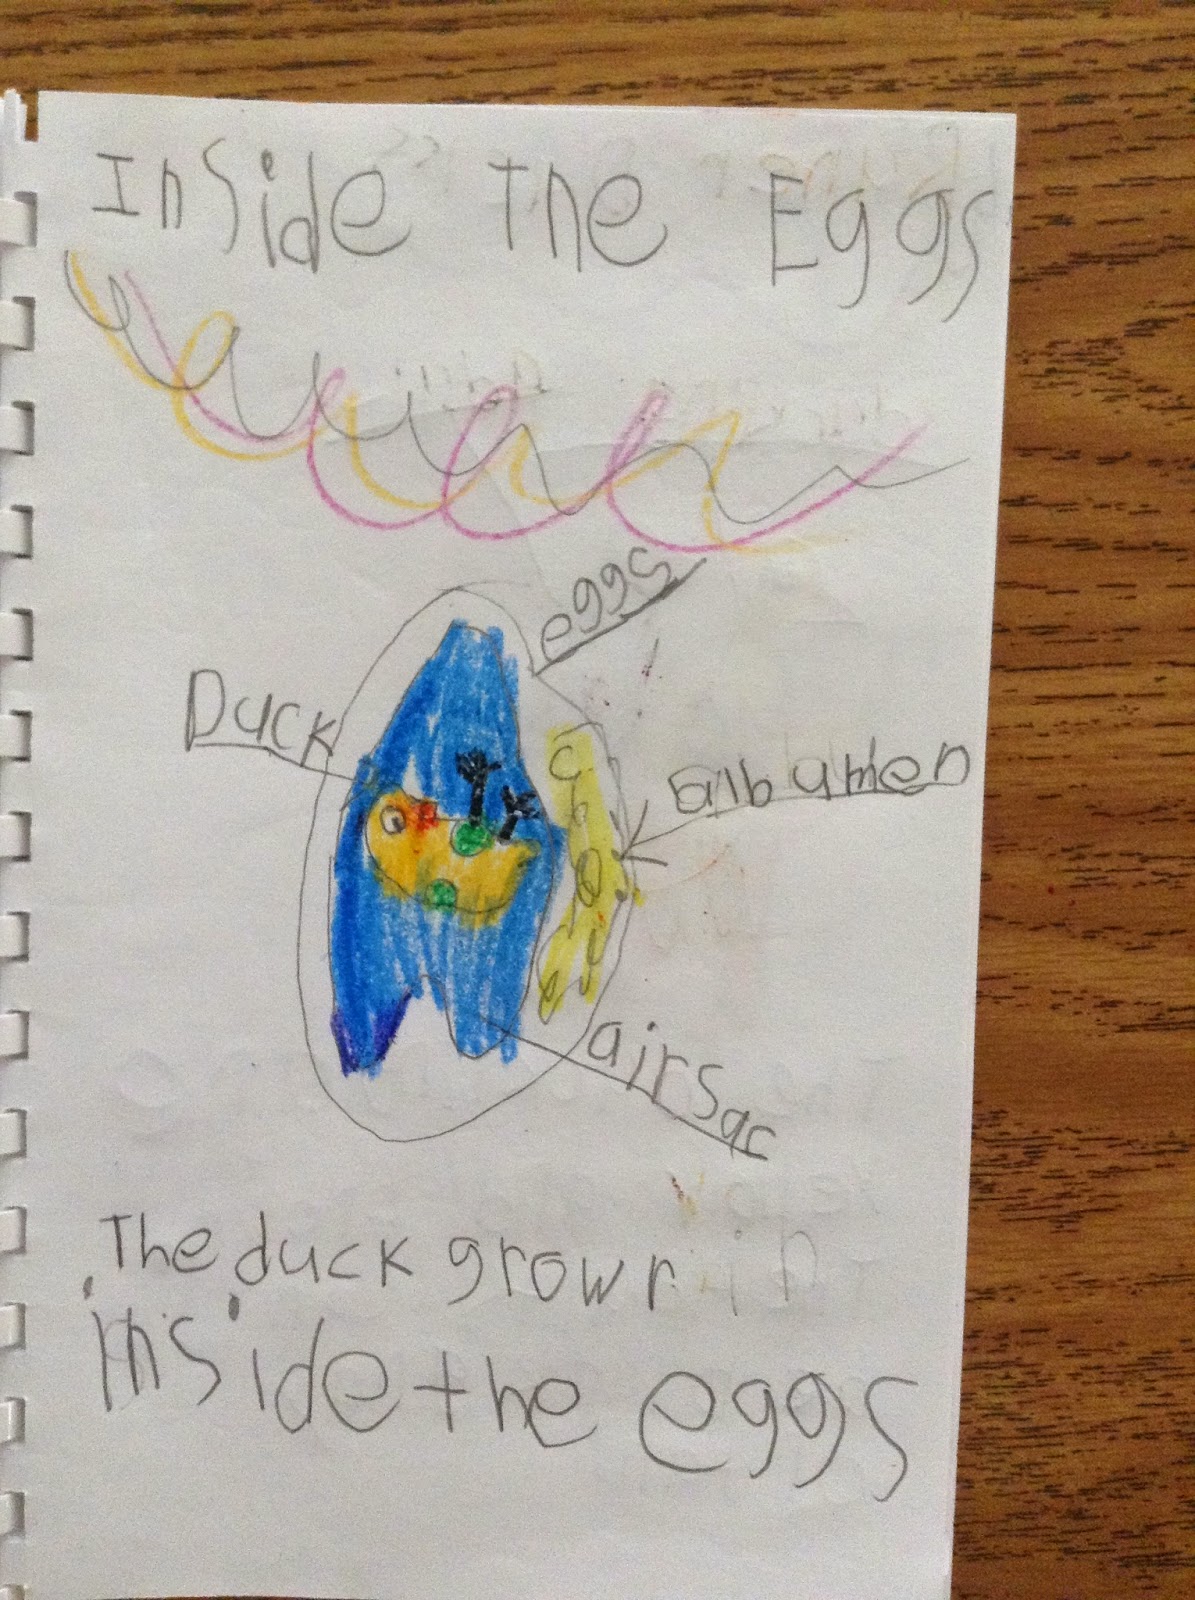 Inside The Eggs
eggs
Duck
albumen
airsac
The duck growr
inside the eggs